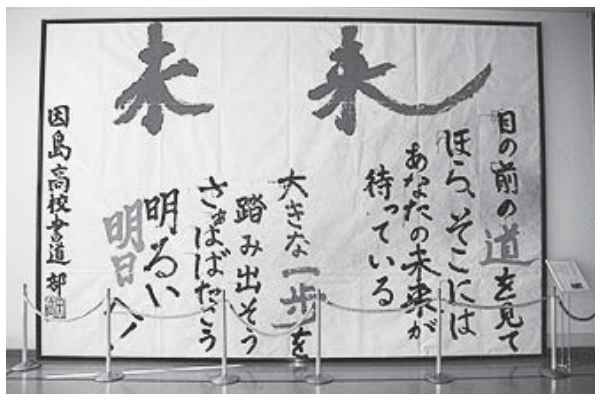 未来
目の前の道を見て
ほら、そこには
あなたの未来が
待っている
大きな一歩を
踏み出そう
さあはばたこう
明るい
明日へ!
因島高校書道部